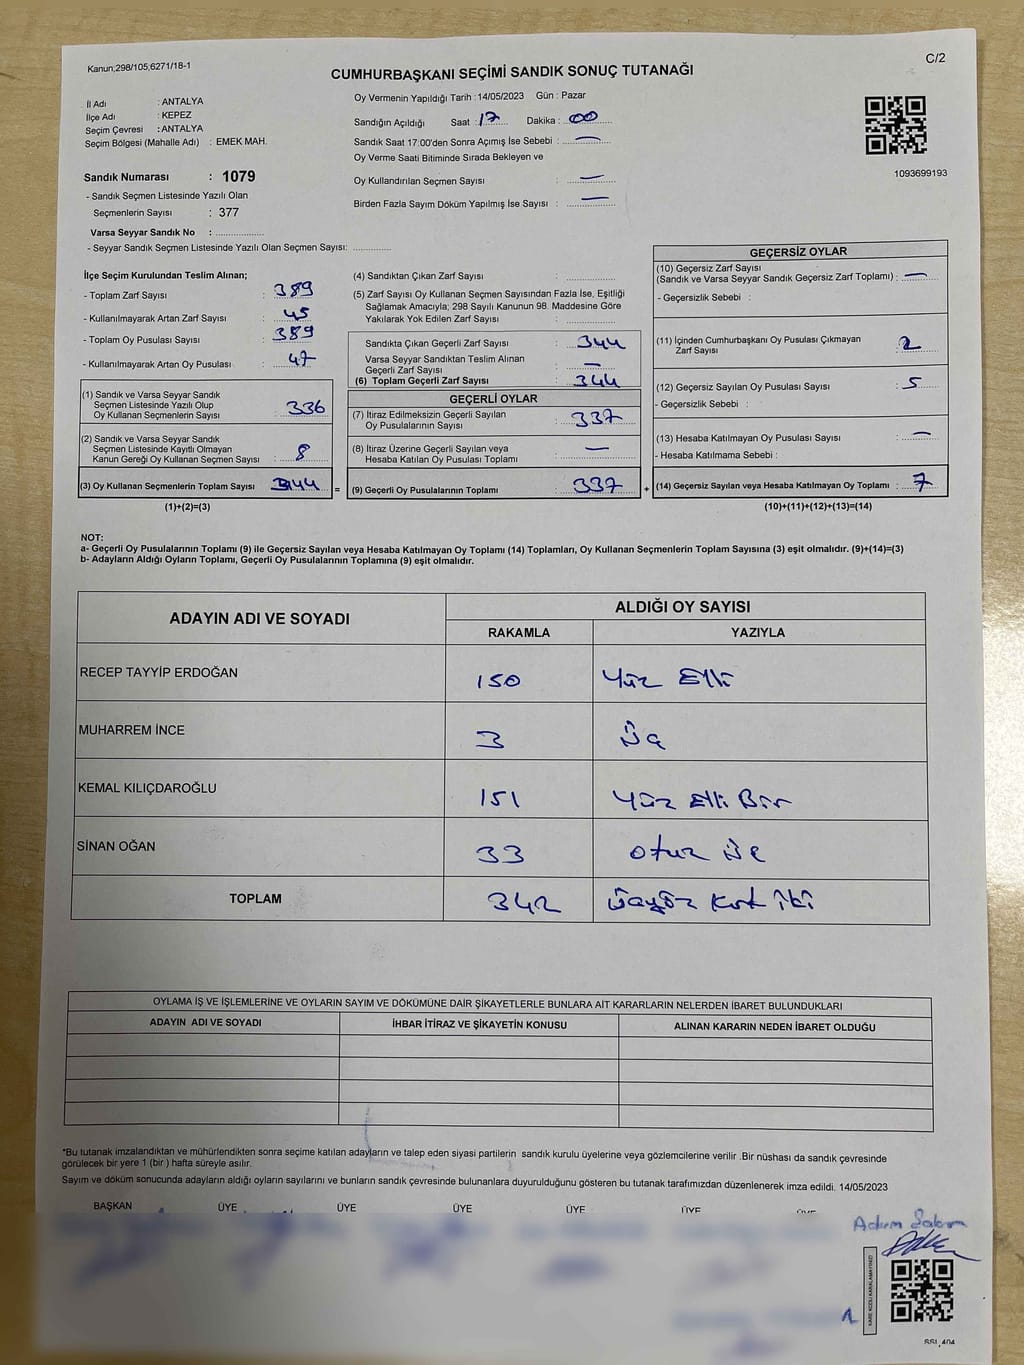 Kanun;298/105,6271/18-1
C/2
CUMHURBAŞKANI SEÇİMİ SANDIK SONUÇ TUTANAĞI
İl Adı : ANTALYA
İlçe Adı : KEPEZ
Seçim Çevresi : ANTALYA
Seçim Bölgesi (Mahalle Adı) : EMEK MAH.
Oy Vermenin Yapıldığı Tarih : 14/05/2023 Gün : Pazar
Sandığın Açıldığı Saat : 17 Dakika : 00
Sandık Saat 17:00'den Sonra Açımış İse Sebebi : —
Oy Verme Saati Bitiminde Sırada Bekleyen ve
Oy Kullandırılan Seçmen Sayısı : —
Birden Fazla Sayım Döküm Yapılmış İse Sayısı : —
1093699193
Sandık Numarası : 1079
- Sandık Seçmen Listesinde Yazılı Olan
Seçmenlerin Sayısı : 377
Varsa Seyyar Sandık No : ..................
- Seyyar Sandık Seçmen Listesinde Yazılı Olan Seçmen Sayısı: ..............
İlçe Seçim Kurulundan Teslim Alınan;
- Toplam Zarf Sayısı : 389
- Kullanılmayarak Artan Zarf Sayısı : 45
- Toplam Oy Pusulası Sayısı : 389
- Kullanılmayarak Artan Oy Pusulası : 47
(1) Sandık ve Varsa Seyyar Sandık
Seçmen Listesinde Yazılı Olup
Oy Kullanan Seçmenlerin Sayısı : 336
(2) Sandık ve Varsa Seyyar Sandık
Seçmen Listesinde Kayıtlı Olmayan
Kanun Gereği Oy Kullanan Seçmen Sayısı : 8
(3) Oy Kullanan Seçmenlerin Toplam Sayısı : 344
(1)+(2)=(3)
(4) Sandıktan Çıkan Zarf Sayısı : ..............
(5) Zarf Sayısı Oy Kullanan Seçmen Sayısından Fazla İse, Eşitliği
Sağlamak Amacıyla; 298 Sayılı Kanunun 98. Maddesine Göre
Yakılarak Yok Edilen Zarf Sayısı : ..............
Sandıkta Çıkan Geçerli Zarf Sayısı : 344
Varsa Seyyar Sandıktan Teslim Alınan
Geçerli Zarf Sayısı : —
(6) Toplam Geçerli Zarf Sayısı : 344
GEÇERLİ OYLAR
(7) İtiraz Edilmeksizin Geçerli Sayılan
Oy Pusulalarının Sayısı : 337
(8) İtiraz Üzerine Geçerli Sayılan veya
Hesaba Katılan Oy Pusulası Toplamı : —
= (9) Geçerli Oy Pusulalarının Toplamı : 337
GEÇERSİZ OYLAR
(10) Geçersiz Zarf Sayısı
(Sandık ve Varsa Seyyar Sandık Geçersiz Zarf Toplamı) : —
- Geçersizlik Sebebi :
(11) İçinden Cumhurbaşkanı Oy Pusulası Çıkmayan
Zarf Sayısı : 2
(12) Geçersiz Sayılan Oy Pusulası Sayısı : 5
- Geçersizlik Sebebi :
(13) Hesaba Katılmayan Oy Pusulası Sayısı : —
- Hesaba Katılmama Sebebi :
+ (14) Geçersiz Sayılan veya Hesaba Katılmayan Oy Toplamı : 7
(10)+(11)+(12)+(13)=(14)
NOT:
a- Geçerli Oy Pusulalarının Toplamı (9) ile Geçersiz Sayılan veya Hesaba Katılmayan Oy Toplamı (14) Toplamları, Oy Kullanan Seçmenlerin Toplam Sayısına (3) eşit olmalıdır. (9)+(14)=(3)
b- Adayların Aldığı Oyların Toplamı, Geçerli Oy Pusulalarının Toplamına (9) eşit olmalıdır.
ADAYIN ADI VE SOYADI
ALDIĞI OY SAYISI
RAKAMLA YAZIYLA
RECEP TAYYİP ERDOĞAN 150 Yüz Elli
MUHARREM İNCE 3 Üç
KEMAL KILIÇDAROĞLU 151 Yüz Elli Bir
SİNAN OĞAN 33 otuz üç
TOPLAM 342 üçyüz Kırk iki
OYLAMA İŞ VE İŞLEMLERİNE VE OYLARIN SAYIM VE DÖKÜMÜNE DAİR ŞİKAYETLERLE BUNLARA AİT KARARLARIN NELERDEN İBARET BULUNDUKLARI
ADAYIN ADI VE SOYADI İHBAR İTİRAZ VE ŞİKAYETİN KONUSU ALINAN KARARIN NEDEN İBARET OLDUĞU
*Bu tutanak imzalandıktan ve mühürlendikten sonra seçime katılan adayların ve talep eden siyasi partilerin sandık kurulu üyelerine veya gözlemcilerine verilir .Bir nüshası da sandık çevresinde
görülecek bir yere 1 (bir ) hafta süreyle asılır.
Sayım ve döküm sonucunda adayların aldığı oyların sayılarını ve bunların sandık çevresinde bulunanlara duyurulduğunu gösteren bu tutanak tarafımızdan düzenlenerek imza edildi. 14/05/2023
BAŞKAN ÜYE ÜYE ÜYE ÜYE ÜYE ÜYE